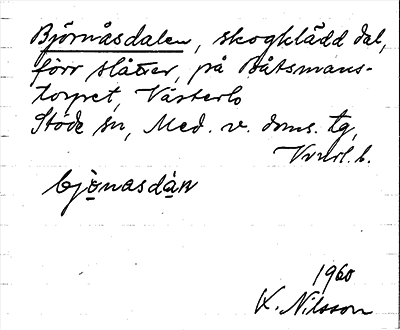 Björnåsdalen, skogklädd dal,
förr slåtter, på Båtsmans-
torpet, Västerlo
Stöde sn, Med. v. doms. tg,
Vnrl. l.
bjönasdàn
1960
K. Nilsson